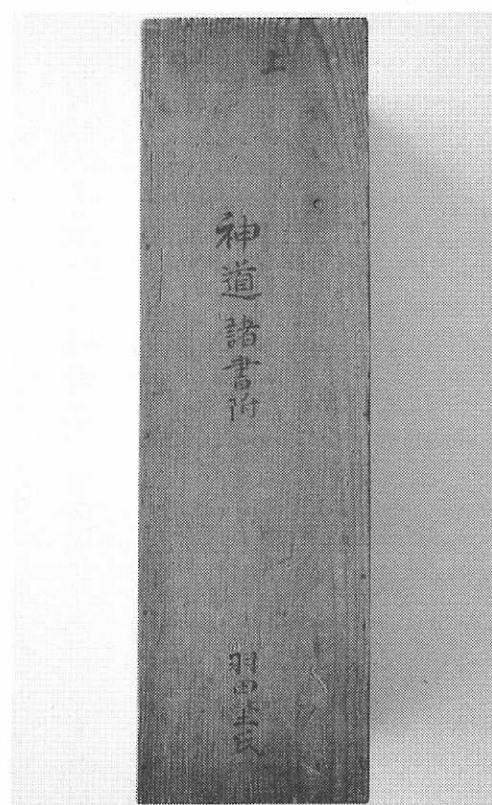 上
神道諸書附
羽田埜氏